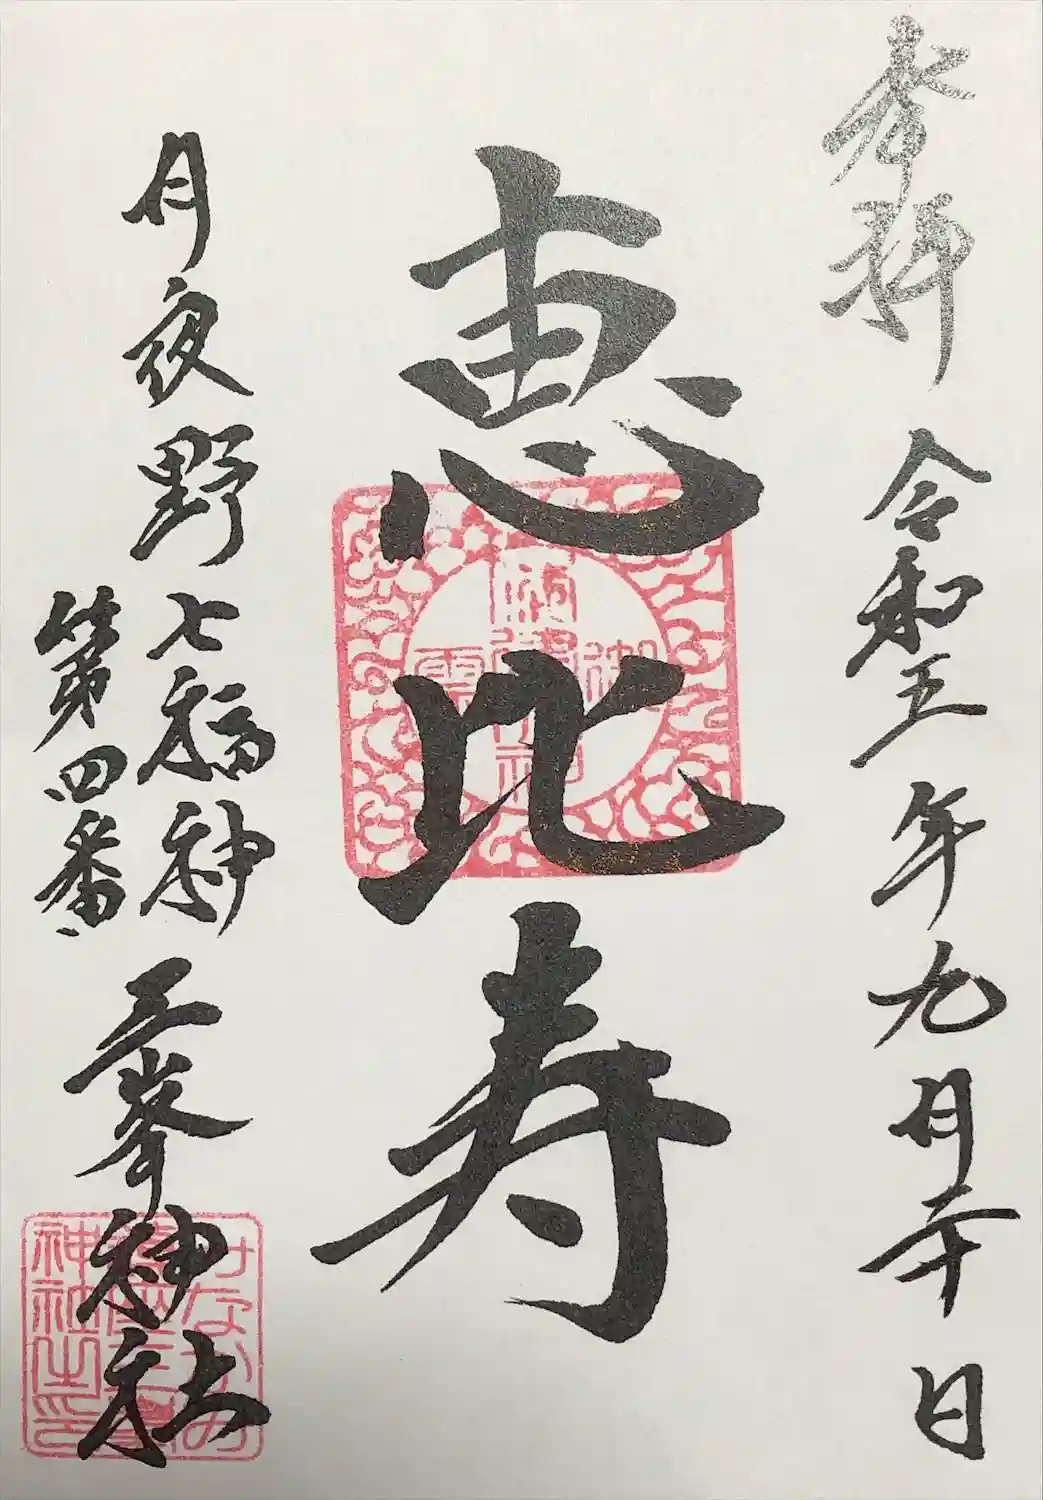 奉拝
令和五年九月
日
恵比寿
月夜野七福神
第四番
三峯神社